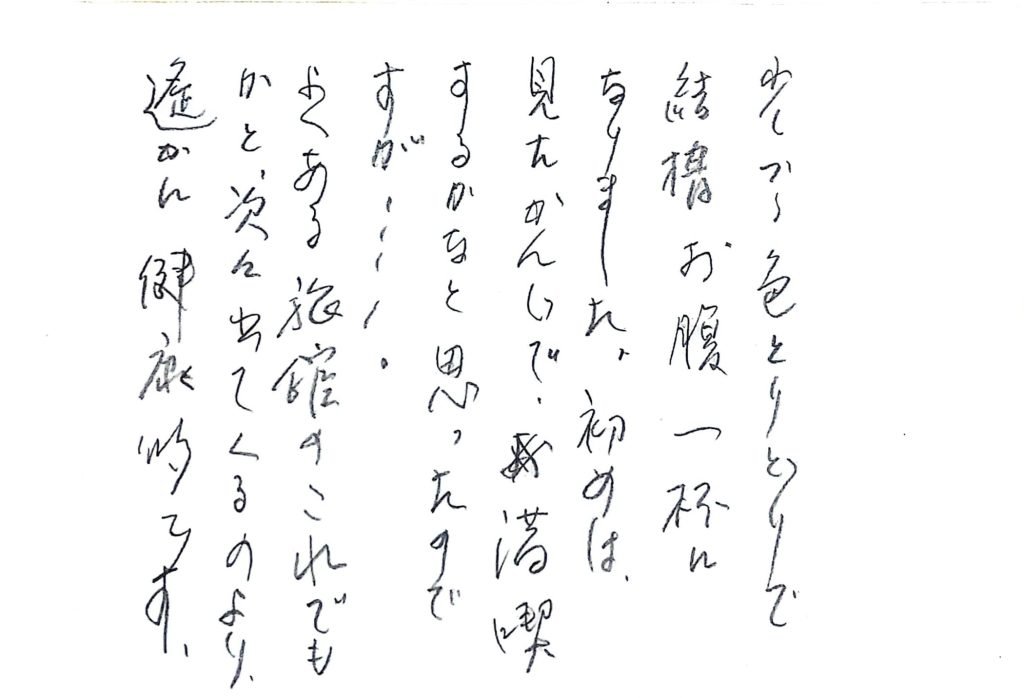 少しづつ色とりどりで
結構お腹一杯に
なりました。初めは、
見たかんじで、満喫
するかなと思ったので
すが・・・・。
よくある旅館のこれでも
かと、次々出てくるのより、
遙かに健康的です。